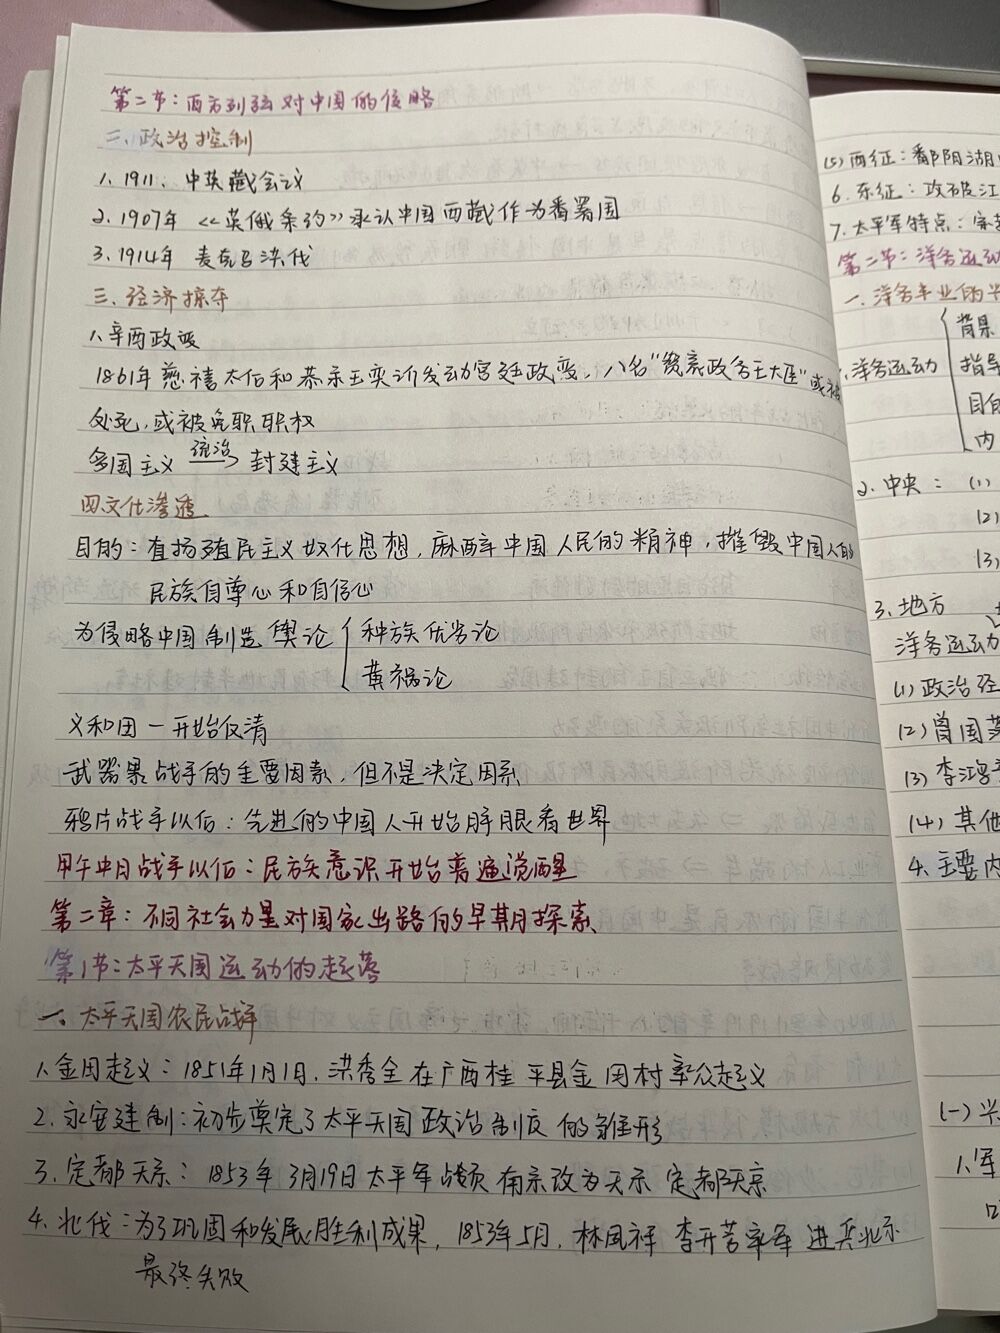 第二节：西方列强对中国的侵略
二、政治控制
1. 1911、中英藏会议
2. 1907年 《英俄条约》承认中国西藏作为番署国
3. 1914年 麦克马洪代
三、经济掠夺
1. 辛酉政变
1861年慈禧太后和恭亲王奕䜣发动宫廷政变，八名"赞襄政务王大臣"或被
处死，或被免职职权
多国主义 统治→ 封建主义
四文化渗透
目的：直扬殖民主义奴化思想，麻醉中国人民的精神，摧毁中国人的
民族自尊心和自信心
为侵略中国制造舆论 { 种族优劣论
黄祸论
义和团一开始反清
武器是战争的主要因素，但不是决定因素
鸦片战争以后：先进的中国人开始睁眼看世界
甲午中日战争以后：民族意识开始普遍觉醒
第二章：不同社会力量对国家出路的早期探索
第1节：太平天国运动的起落
一、太平天国农民战争
1. 金田起义：1851年1月1日，洪秀全在广西桂平县金田村率众起义
2. 永安建制：初步奠定了太平天国政治制度的雏形
3. 定都天京：1853年3月19日太平军占领南京改为天京 定都天京
4. 北伐：为了巩固和发展胜利成果，1853年5月，林凤祥 李开芳率军进兵北京
最终失败
(5) 西征：鄱阳湖
6. 东征：攻破江
7. 太平军特点：
第二节：洋务运动
一、洋务事业的兴
1. 洋务运动 { 背景
指导
目的
内
2. 中央： (1)
(2)
(3)
3. 地方
洋务运动
(1) 政治经
(2) 曾国
(3) 李鸿章
(4) 其他
4. 主要内
(一) 兴
1. 军